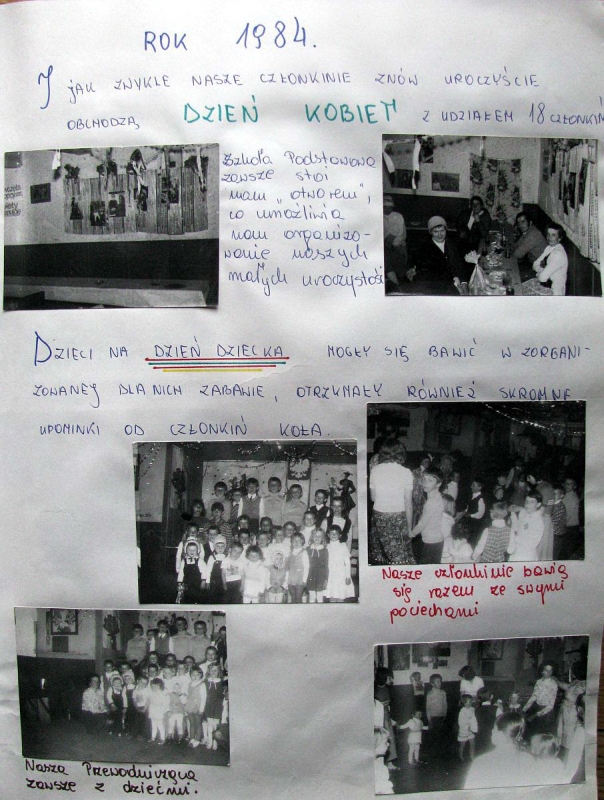 ROK 1984.
I JAK ZWYKLE NASZE CZŁONKINIE ZNÓW UROCZYŚCIE
OBCHODZĄ DZIEŃ KOBIET Z UDZIAŁEM 18 CZŁONKIŃ
Szkoła Podstawowa
zawsze stoi
nam „otworem",
co umożliwia
nam organizo-
wanie naszych
małych uroczystości
DZIECI NA DZIEŃ DZIECKA MOGŁY SIĘ BAWIĆ W ZORGANI-
ZOWANEJ DLA NICH ZABAWIE, OTRZYMAŁY RÓWNIEŻ SKROMNE
UPOMINKI OD CZŁONKIŃ KOŁA.
Nasze członkinie bawią
się razem ze swymi
pociechami
Nasza Przewodnicząca
zawsze z dziećmi.